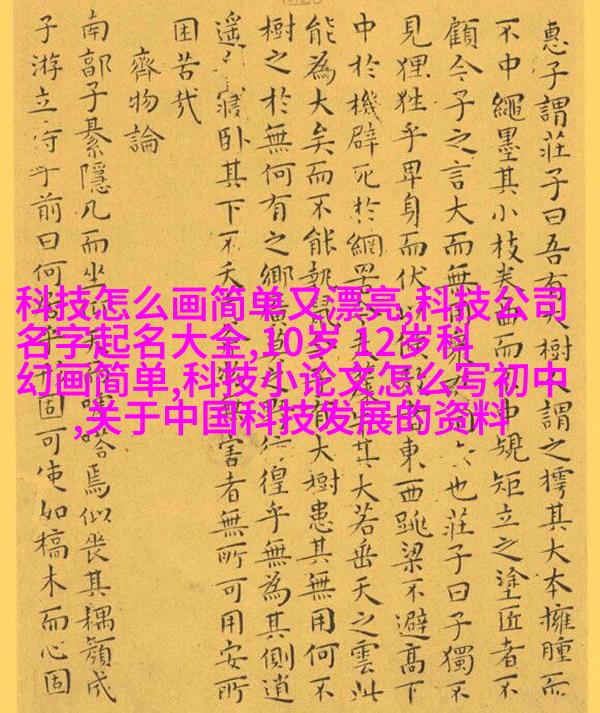 科技怎么画简单又漂亮,科技公司
名字起名大全,10岁 12岁科
幻画简单,科技小论文怎么写初中
,关于中国科技发展的资料
惠子謂莊子曰吾有大樹人謂之樗其大本擁腫而
不中繩墨其小枝卷曲而不中規矩立之塗匠者不
顧今子之言大而無也莊子曰子獨不
見狸狌乎卑身而伏以候東西跳梁不避高下
中於機辟死於網罟其大若垂天之雲此
能為大矣而不能執鼠有大樹患其無用何不
樹之於無何有之鄉徨乎無為其側逍
遙寢臥其下不夭無害者無所可用安所
困苦哉
齊物論
南郭子綦隱几而坐嗒焉似喪其耦顏成
子游立侍乎前曰何固可使如槁木而心固